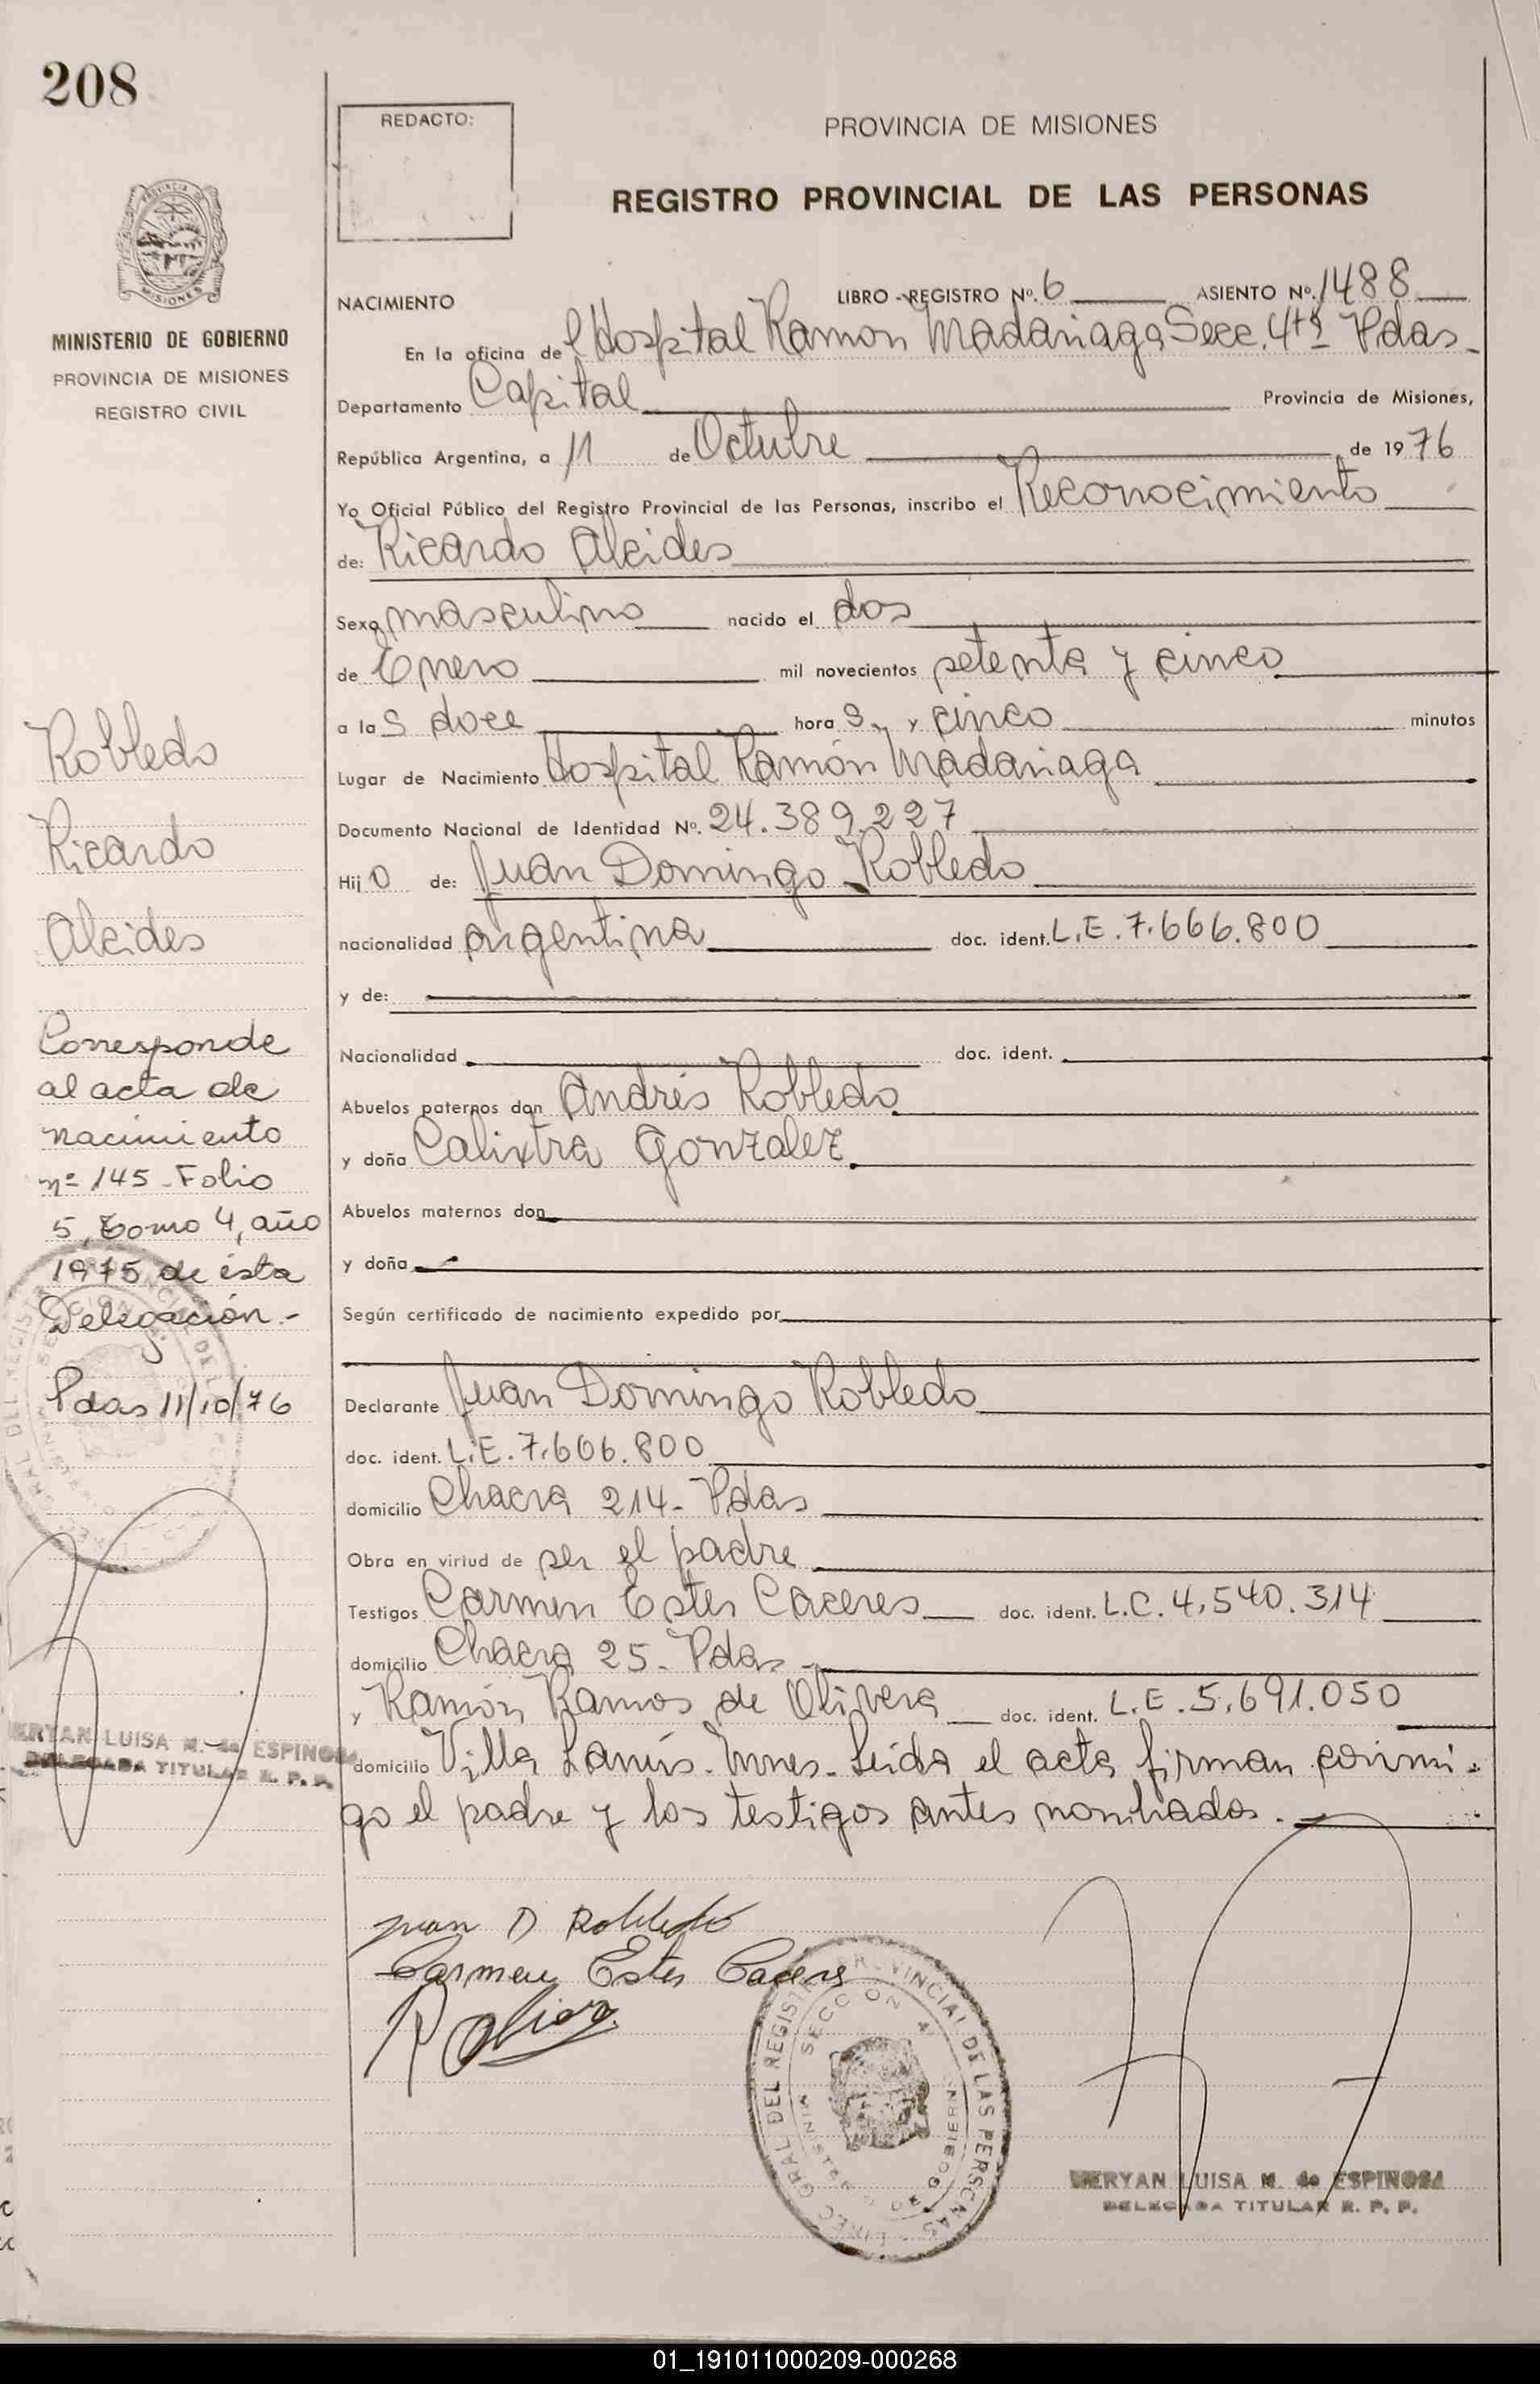 208
REDACTO:
PROVINCIA DE MISIONES
REGISTRO PROVINCIAL DE LAS PERSONAS
MISIONES
MINISTERIO DE GOBIERNO
PROVINCIA DE MISIONES
REGISTRO CIVIL
NACIMIENTO LIBRO - REGISTRO Nº. 6 ASIENTO Nº. 1488
En la oficina de l Hospital Ramon Madariaga Secc. 4ta Pdas
Departamento Capital Provincia de Misiones,
República Argentina, a 11 de Octubre de 1976
Yo Oficial Público del Registro Provincial de las Personas, inscribo el Reconocimiento
de: Ricardo Alcides
Sexo masculino nacido el dos
de Enero mil novecientos setenta y cinco
a las doce horas y cinco minutos
Lugar de Nacimiento Hospital Ramón Madariaga
Documento Nacional de Identidad Nº. 24.389.227
Hijo de: Juan Domingo Robledo
nacionalidad argentina doc. ident. L.E. 7.666.800
y de:
Nacionalidad doc. ident.
Abuelos paternos don Andrés Robledo
y doña Calixtra Gonzalez
Abuelos maternos don
y doña
Según certificado de nacimiento expedido por
Declarante Juan Domingo Robledo
doc. ident. L.E. 7.606.800
domicilio Chacra 214 - Pdas
Obra en virtud de ser el padre
Testigos Carmen Ester Caceres doc. ident. L.C. 4.540.314
domicilio Chacra 25 - Pdas
y Ramón Ramos de Olivera doc. ident. L.E. 5.691.050
domicilio Villa Lanús - Mnes - Leida el acta firman conmi-
go el padre y los testigos antes nombrados.
Robledo
Ricardo
Alcides
Corresponde
al acta de
nacimiento
nº 145 - Folio
5, Tomo 4, año
1975 de ésta
Delegación.-
Pdas 11/10/76
MERYAN LUISA M. de ESPINOSA
DELEGADA TITULAR R. P. P.
Juan D Robledo
Carmen Ester Caceres
DIREC GRAL DEL REGISTRO PROVINCIAL DE LAS PERSONAS
SECCION 4
MINISTERIO DE GOBIERNO
MERYAN LUISA M. de ESPINOSA
DELEGADA TITULAR R. P. P.
01_191011000209-000268